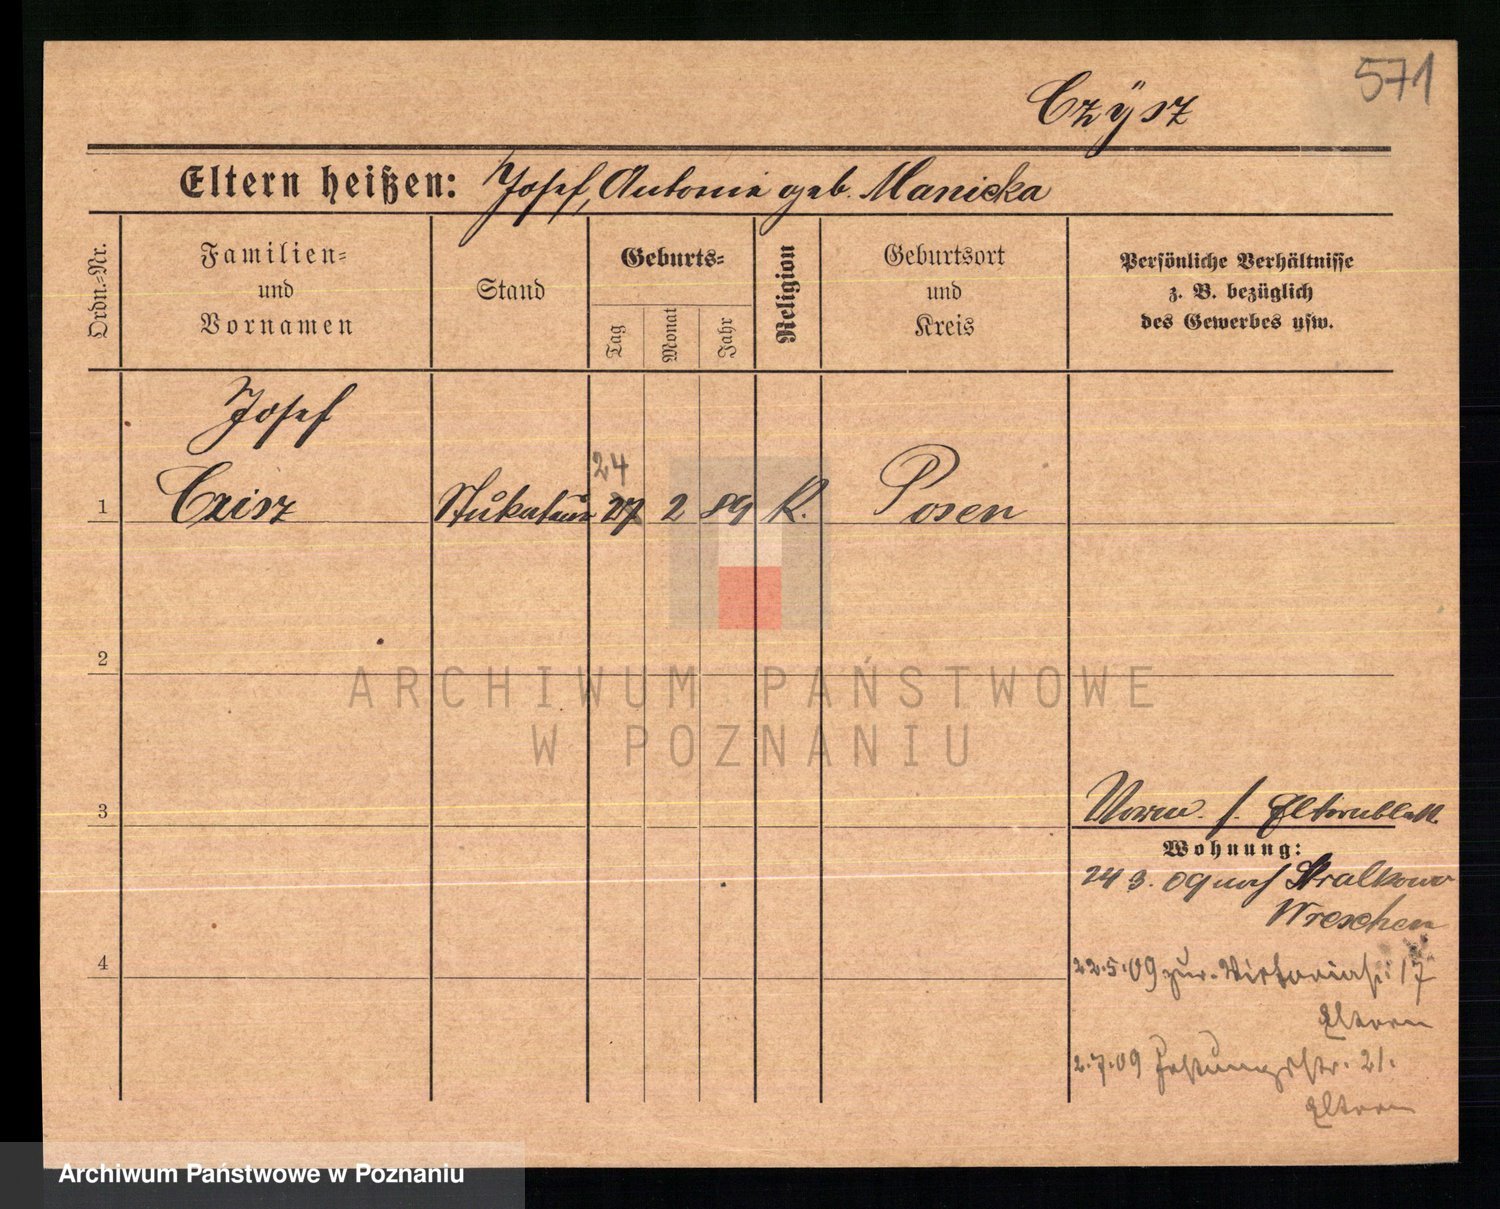 571
Czÿsz
Eltern heißen: Josef, Antonie geb. Manicka
Ordn.-Nr.
Familien-
und
Vornamen
Stand
Geburts-
Tag
Monat
Jahr
Religion
Geburtsort
und
Kreis
Persönliche Verhältnisse
z. B. bezüglich
des Gewerbes usw.
Josef
24
1 Czisz Stukateur 27 2 89 K. Posen
2
ARCHIWUM PAŃSTWOWE
W POZNANIU
3
Vorw. s. Elternblatt
Wohnung:
24 3. 09 nach Stralkowo
Wreschen
4
22.5.09 zur. Victoriastr. 17
Eltern
2.7.09 Festungsstr. 21.
Eltern
Archiwum Państwowe w Poznaniu